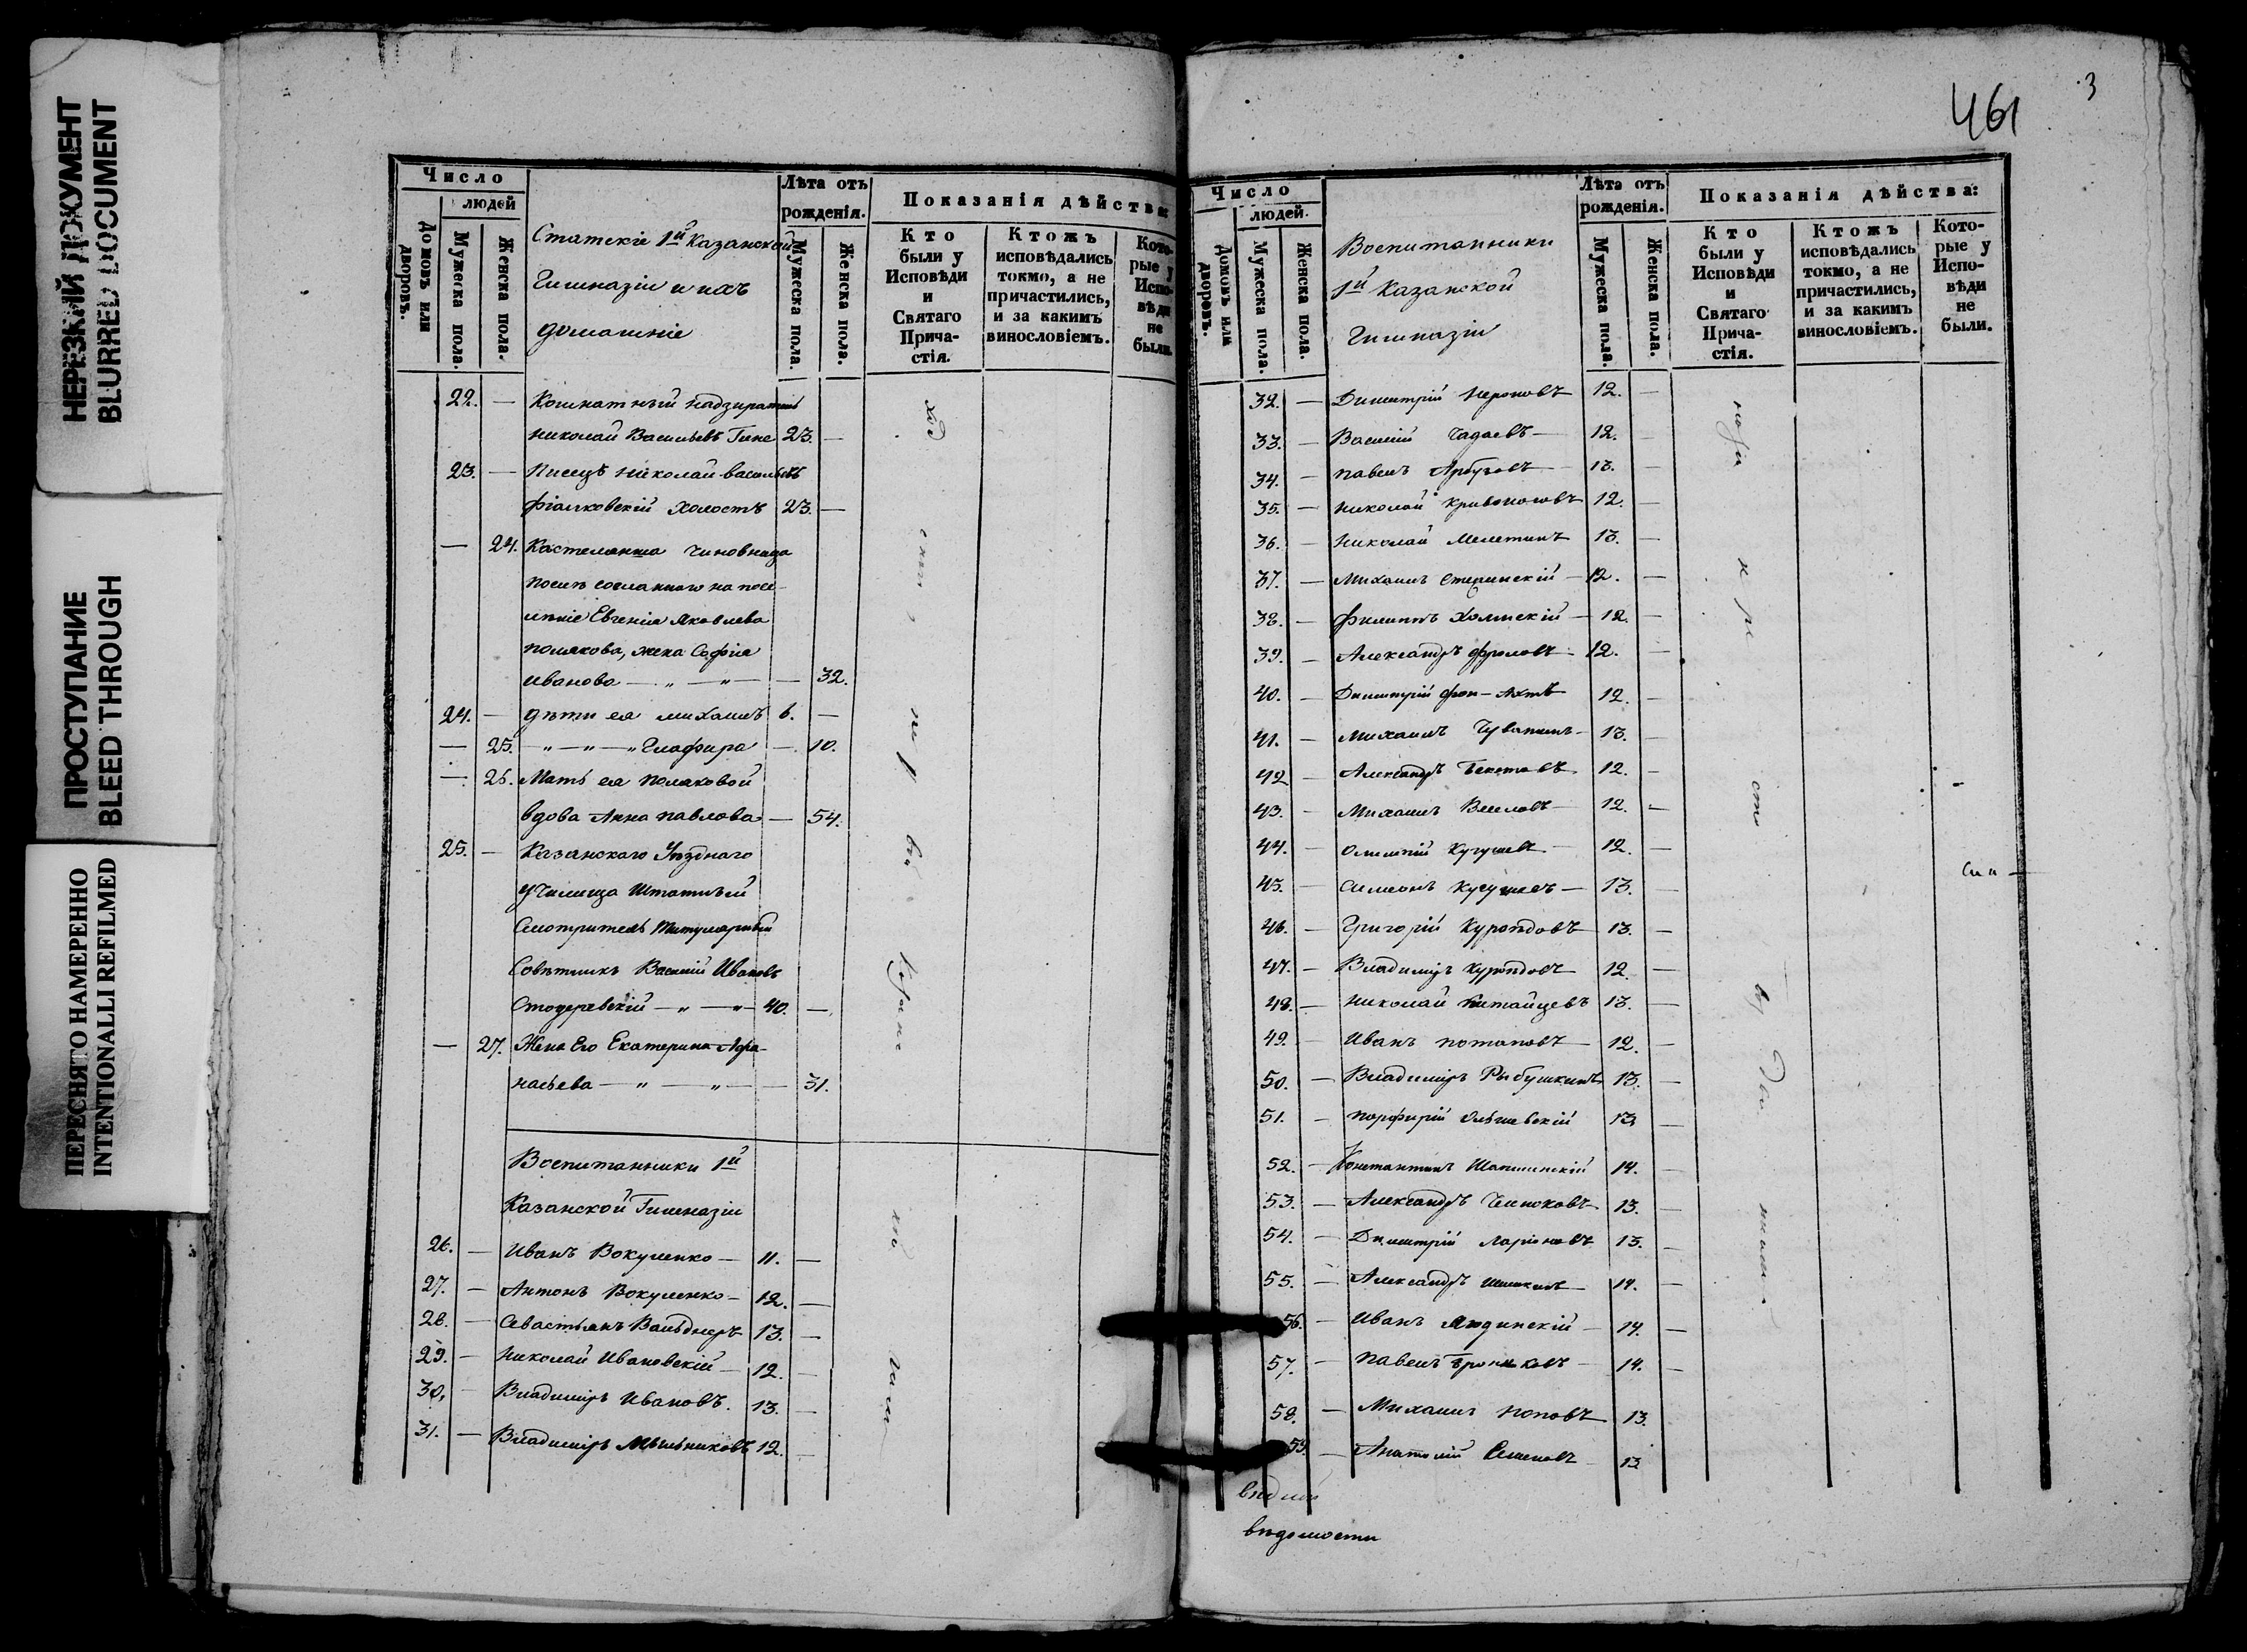 НЕРЕЗКИЙ ДОКУМЕНТ
BLURRED DOCUMENT
ПРОСТУПАНИЕ
BLEED THROUGH
ПЕРЕСНЯТО НАМЕРЕННО
INTENTIONALLI REFILMED
Число
людей
Домовъ или дворовъ.
Мужеска пола.
Женска пола.
Статскіе 1й Казанской
Гимназіи и ихъ
домашніе
Лѣта отъ
рожденія.
Мужеска пола.
Женска пола.
Показанія дѣйства:
Кто
были у
Исповѣди
и
Святаго
Прича-
стія.
Ктожъ
исповѣдались
токмо, а не
причастились,
и за какимъ
винословіемъ.
Кото-
рые у
Испо-
вѣди
не
были.
22. — Комнатный надзиратель
Николай Васильевъ Гине 23. —
23. — Писецъ Николай Васильевъ
Фіалковскій холостъ 23. —
— 24. Кастелянша чиновница
после сосланнаго на посе-
леніе Евгенія Яковлева
Полякова, жена Софія
Иванова — „ — „ — — 32.
24. — Дѣти ея Михаилъ 6. —
— 25. — „ — „ — „ Глафира — 10.
— 26. Мать ея Поляковой
вдова Анна Павлова — 54.
25. — Казанскаго Уѣзднаго
Училища Штатный
Смотритель Титулярный
Совѣтникъ Василій Ивановъ
— „ — „ — 40. —
— 27. Жена Его Екатерина Афа-
насьева — „ — „ — — 31.
Воспитанники 1й
Казанской Гимназіи
26. — Иванъ Вокуленко — 11. —
27. — Антонъ Вокуленко — 12. —
28. — Севастьянъ 13. —
29. — Николай Ивановскій — 12. —
30. — Владиміръ Ивановъ. 13. —
31. — Владиміръ Мельниковъ 12. —
461
3
Число
людей.
Домовъ или дворовъ.
Мужеска пола.
Женска пола.
Воспитанники
1й Казанской
Гимназіи
Лѣта отъ
рожденія.
Мужеска пола.
Женска пола.
Показанія дѣйства:
Кто
были у
Исповѣди
и
Святаго
Прича-
стія.
Ктожъ
исповѣдались
токмо, а не
причастились,
и за какимъ
винословіемъ.
Кото-
рые у
Испо-
вѣди
не
были.
32. — Димитрій Нероновъ 12. —
33. — Василій Чадаевъ — 12. —
34. — Павелъ Арбузовъ 13. —
35. — Николай Кривоносовъ 12. —
36. — Николай Мелетинъ 13. —
37. — Михаилъ — 12. —
38. — Филиппъ Холмскій — 12. —
39. — Александръ Фроловъ 12. —
40. — Димитрій фон- 12. —
41. — Михаилъ 13. —
42 — Александръ Бекетовъ 12. —
43. — Михаилъ Веселовъ 12. —
44. — Кугушев 12. —
45. — Симеонъ Кугушевъ — 13. —
46. — Григорій Куроѣдовъ — 13. —
47. — Владиміръ Куроѣдовъ 12. —
48. — Николай Китайцевъ 13. —
49. — Иванъ Потаповъ 12. —
50. — Владиміръ Рыбушкинъ 13. —
51. — Порфирій Ольшевскій 13. —
52. — Константинъ 14. —
53. — Александръ 13. —
54. — Димитрій Ларіоновъ 13. —
55. — Александръ 14. —
56. — Иванъ — 14. —
57. — Павелъ — 14. —
58. — Михаилъ Поповъ 13.
59. — Анатолій Семеновъ 13
ведомости